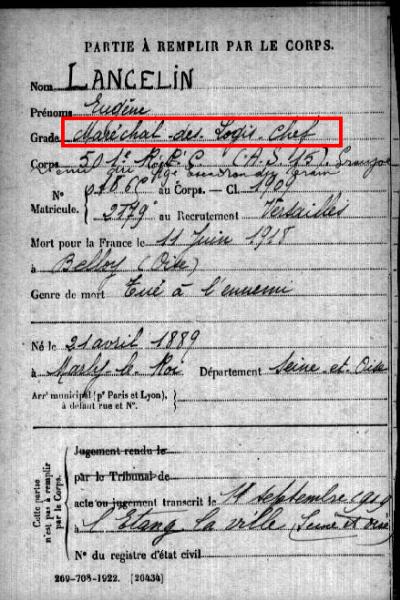 PARTIE À REMPLIR PAR LE CORPS.
Nom LANCELIN
Prénoms Eugène
Grade Maréchal-des-Logis-Chef
Corps 501e R.A.C. (A.S. 15)
N° au Corps. — Cl. 1909
Matricule. 2779 au Recrutement Versailles
Mort pour la France le 11 Juin 1918
à Belloy (Oise)
Genre de mort Tué à l'ennemi
Né le 21 avril 1889
à Marly-le-Roi Département Seine-et-Oise
Arrt municipal (pr Paris et Lyon), à défaut rue et N°.
Cette partie n'est pas à remplir par le Corps.
Jugement rendu le
par le Tribunal de
acte ou jugement transcrit le 14 septembre 1919
à l'Etang la ville (Seine et Oise)
N° du registre d'état civil
269-708-1922. [26434]